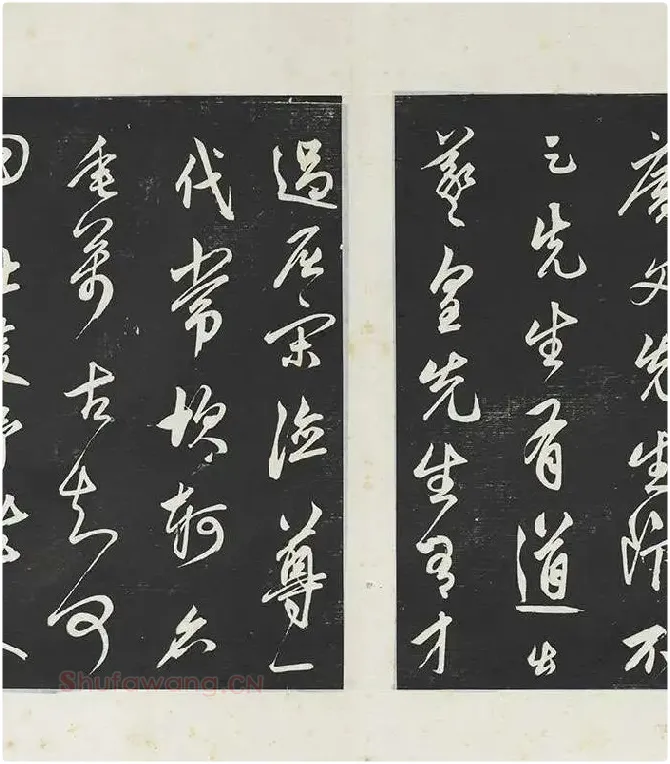 廣文先生飯不
足先生有道出
羲皇先生有才
過屈宋德尊一
代常坎軻名
垂萬古知何
用陵野人
Shufawang.CN